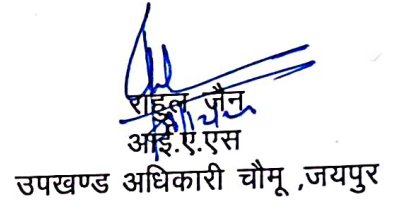 राहुल जैन
आई.ए.एस
उपखण्ड अधिकारी चौमू ,जयपुर